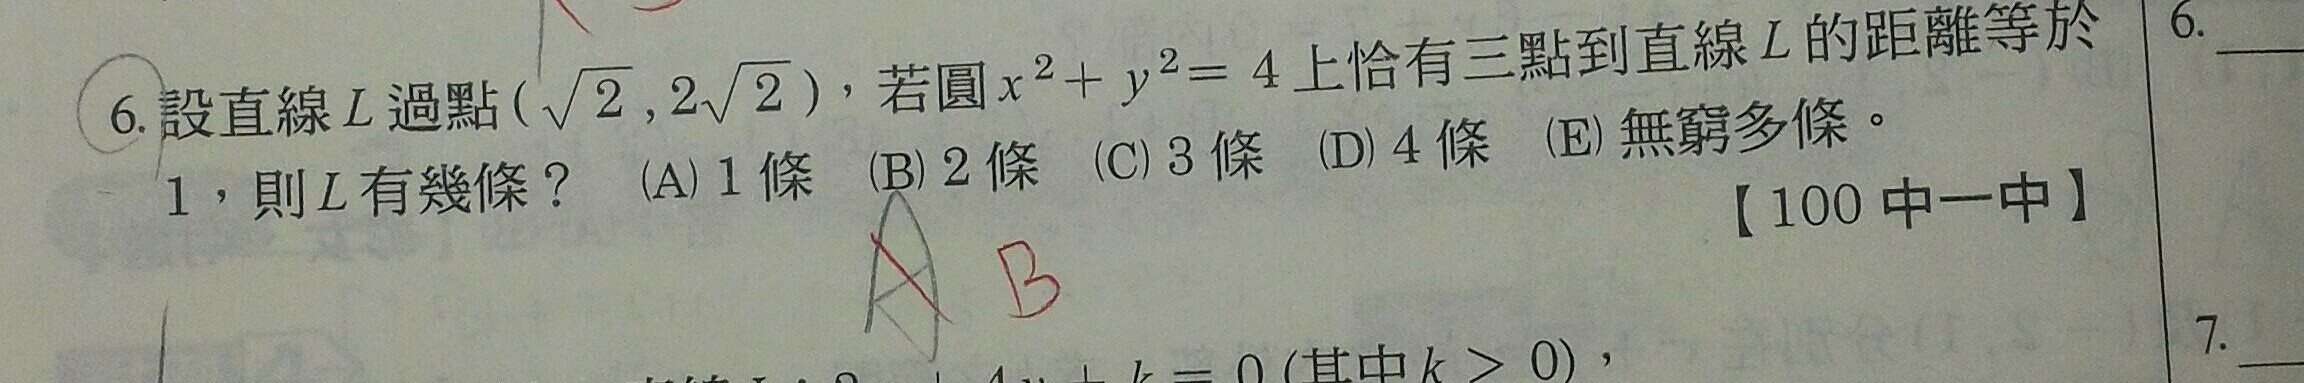 6. 設直線 L 過點 ( √2 , 2√2 )，若圓 x² + y² = 4 上恰有三點到直線 L 的距離等於
1，則 L 有幾條？ (A) 1 條 (B) 2 條 (C) 3 條 (D) 4 條 (E) 無窮多條。
【100 中一中】
A B
k = 0 (其中 k > 0)，
6.
7.